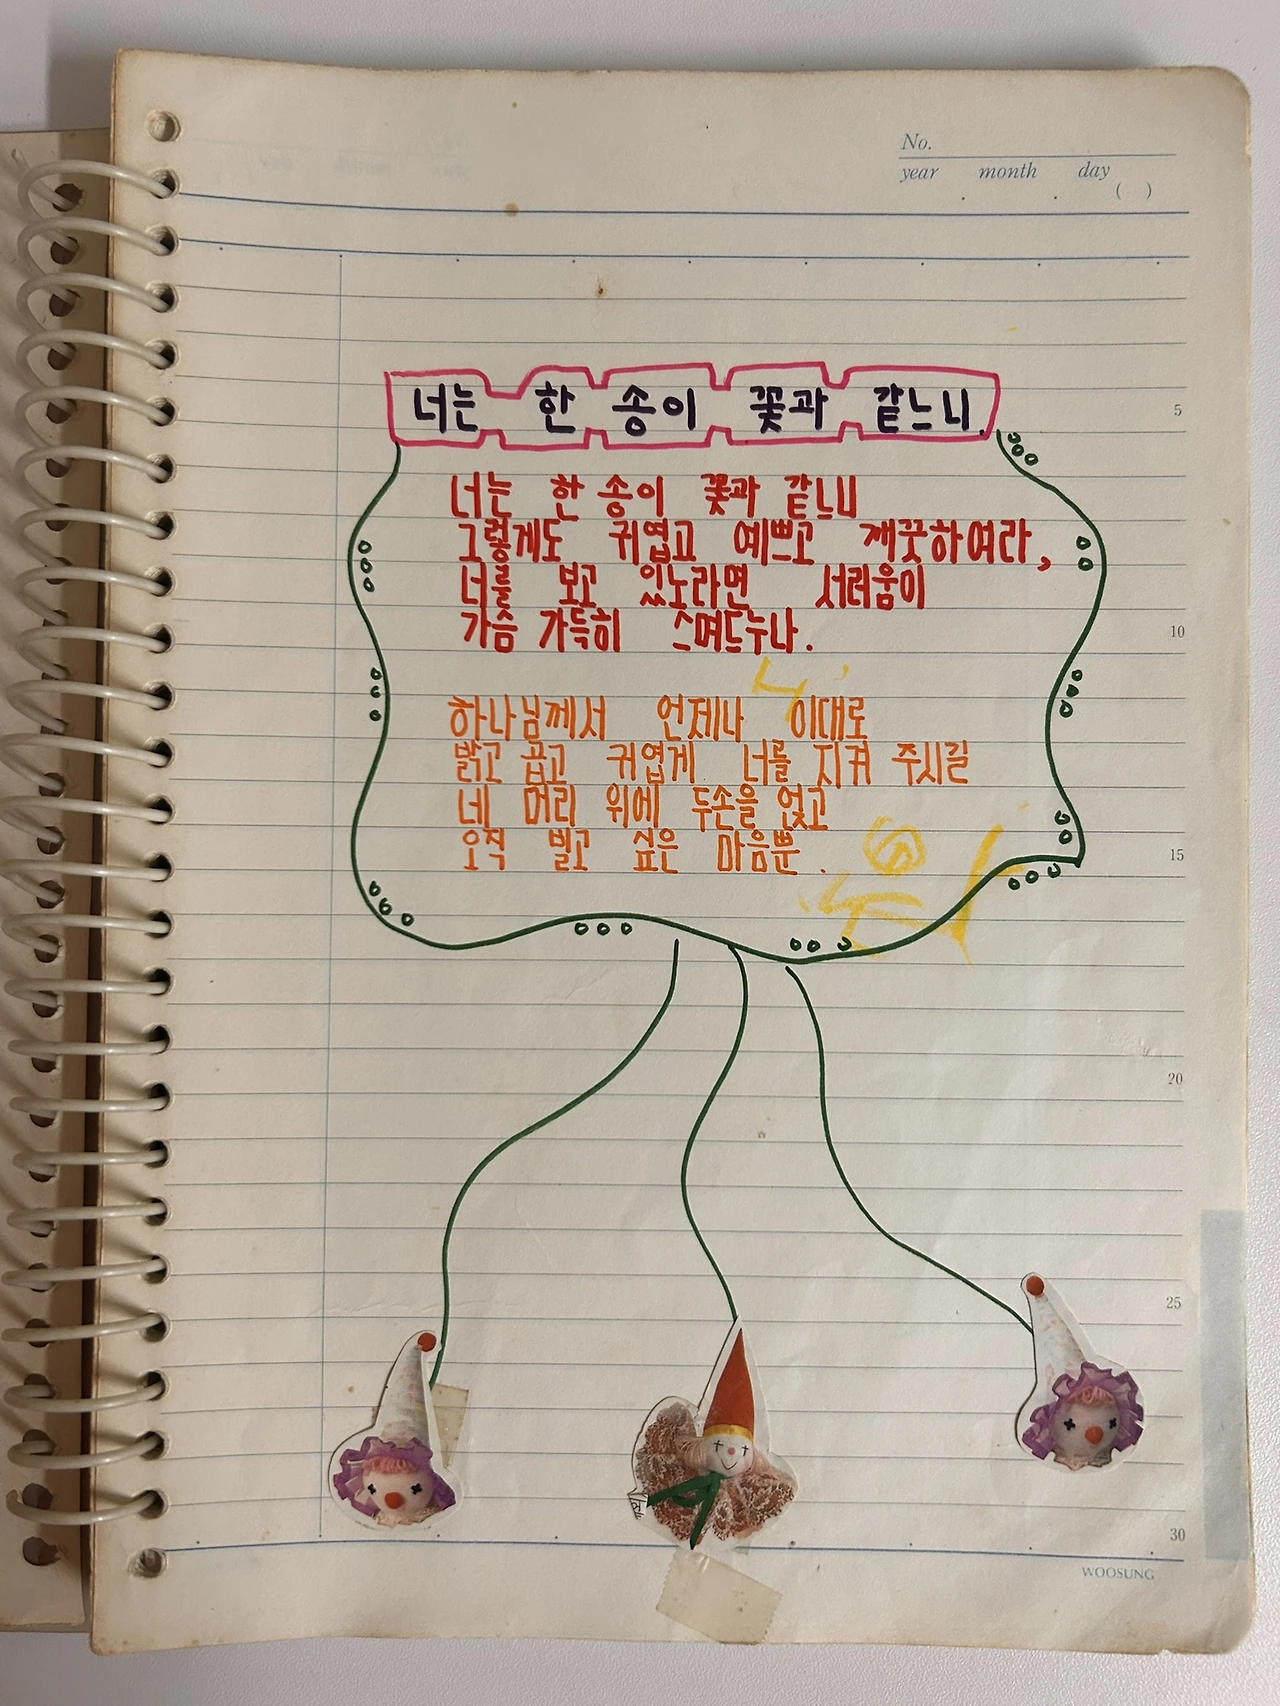 No.
year month day
( )
너는 한 송이 꽃과 같느니.
너는 한 송이 꽃과 같느니
그렇게도 귀엽고 예쁘고 깨끗하여라,
너를 보고 있노라면 서러움이
가슴 가득히 스며드누나.
하나님께서 언제나 이대로
밝고 곱고 귀엽게 너를 지켜 주시길
네 머리 위에 두손을 얹고
오직 빌고 싶은 마음뿐.
5
10
15
20
25
30
WOOSUNG